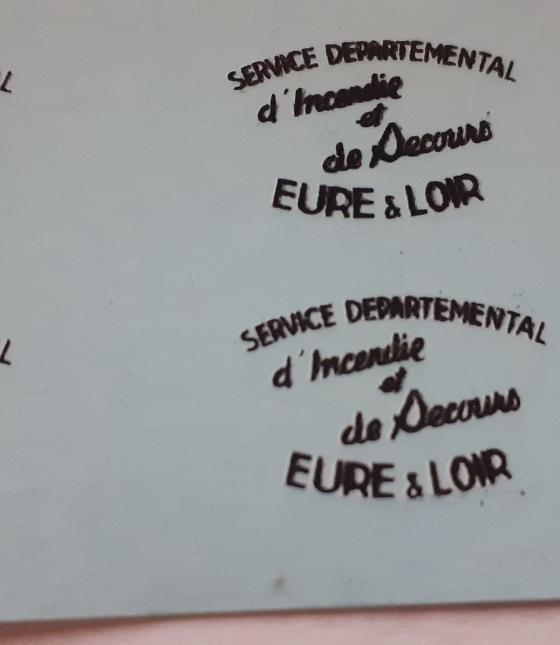 SERVICE DEPARTEMENTAL
d'Incendie
et
de Secours
EURE & LOIR
SERVICE DEPARTEMENTAL
d'Incendie
et
de Secours
EURE & LOIR
L
L